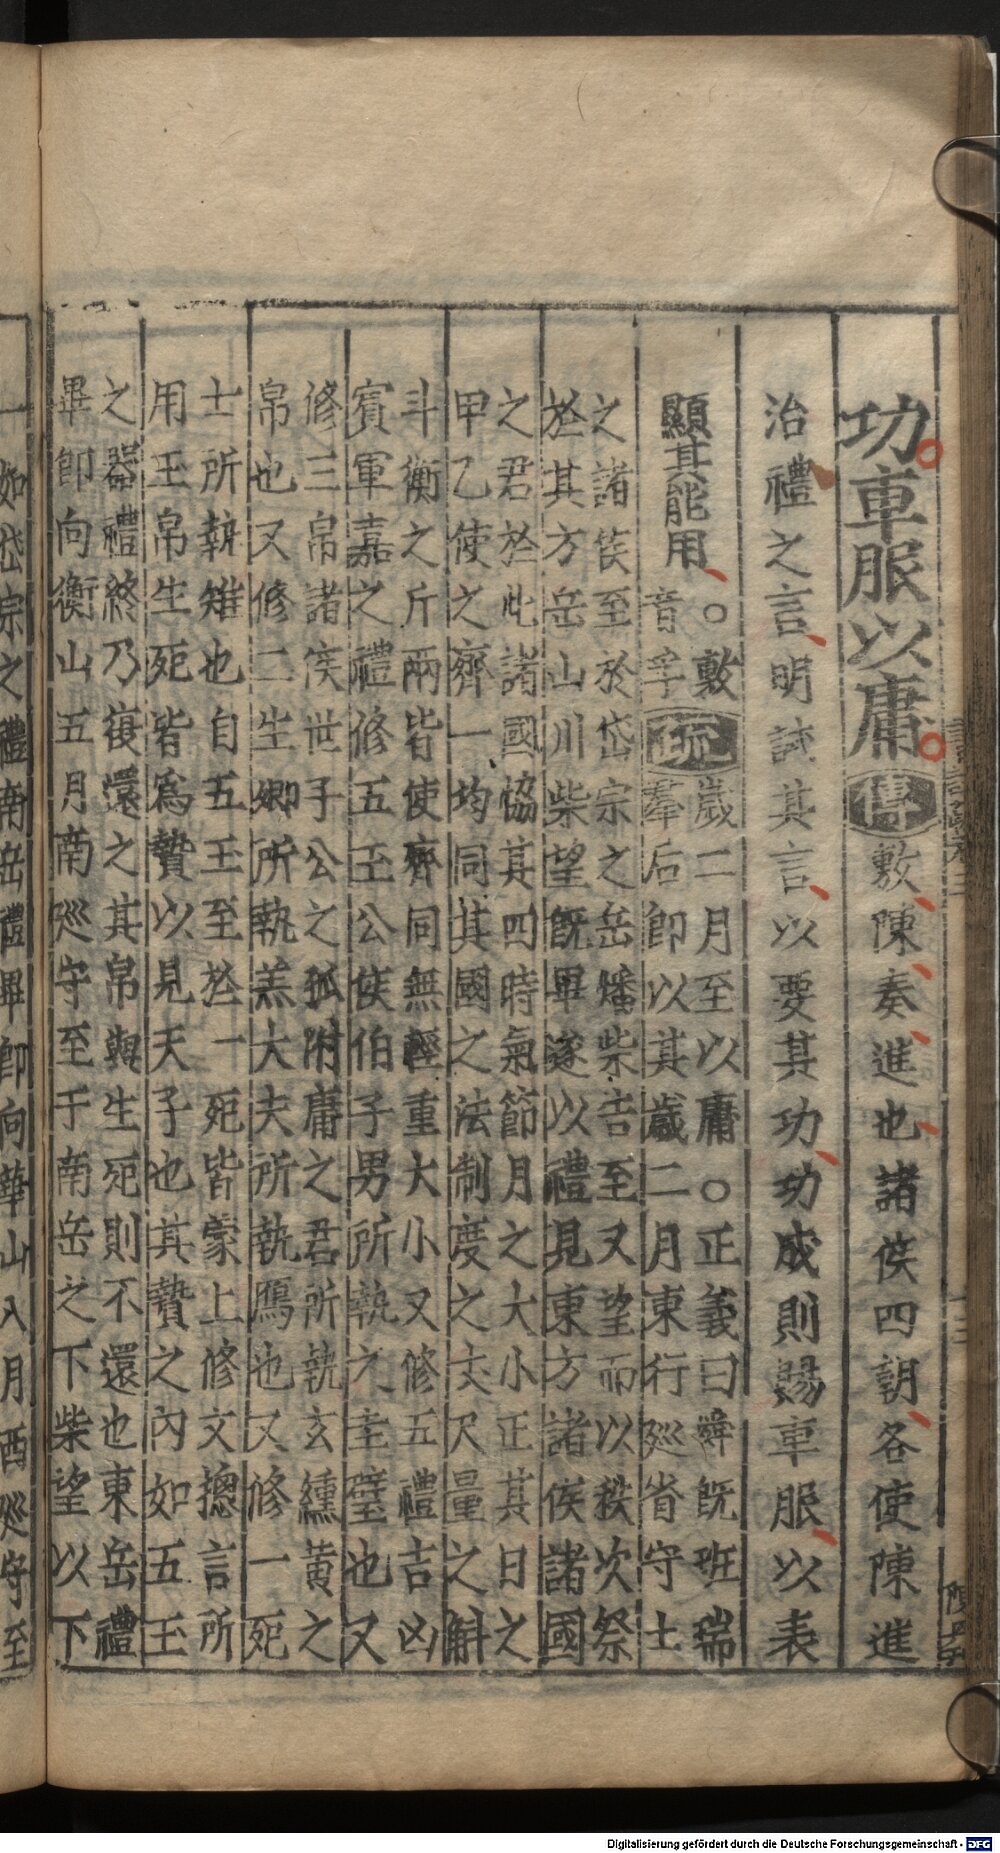 功車服以庸傳敷陳奏進也諸侯四朝各使陳進
治禮之言明試其言以要其功功成則賜車服以表
顯其能用○敷
音孚疏歲二月至以庸○正義曰舜旣班瑞
羣后卽以其歲二月東行廵省守土
之諸侯至於岱宗之岳燔柴告至又望而以秩次祭
於其方岳山川柴望旣畢遂以禮見東方諸侯諸國
之君於此諸國協其四時氣節月之大小正其日之
甲乙使之齊一均同其國之法制度之丈尺量之斛
斗衡之斤兩皆使齊同無輕重大小又修五禮吉凶
賓軍嘉之禮修五玉公侯伯子男所執之圭璧也又
修三帛諸侯世子公之孤附庸之君所執玄纁黃之
帛也又修二生卿所執羔大夫所執鴈也又修一死
士所執雉也自五玉至於一死皆蒙上修文揔言所
用玉帛生死皆爲贄以見天子也其贄之內如五玉
之器禮終乃復還之其帛與生死則不還也東岳禮
畢卽向衡山五月南廵守至于南岳之下柴望以下
一如岱宗之禮南岳禮畢卽向華山八月西廵守至
Digitalisierung gefördert durch die Deutsche Forschungsgemeinschaft - DFG